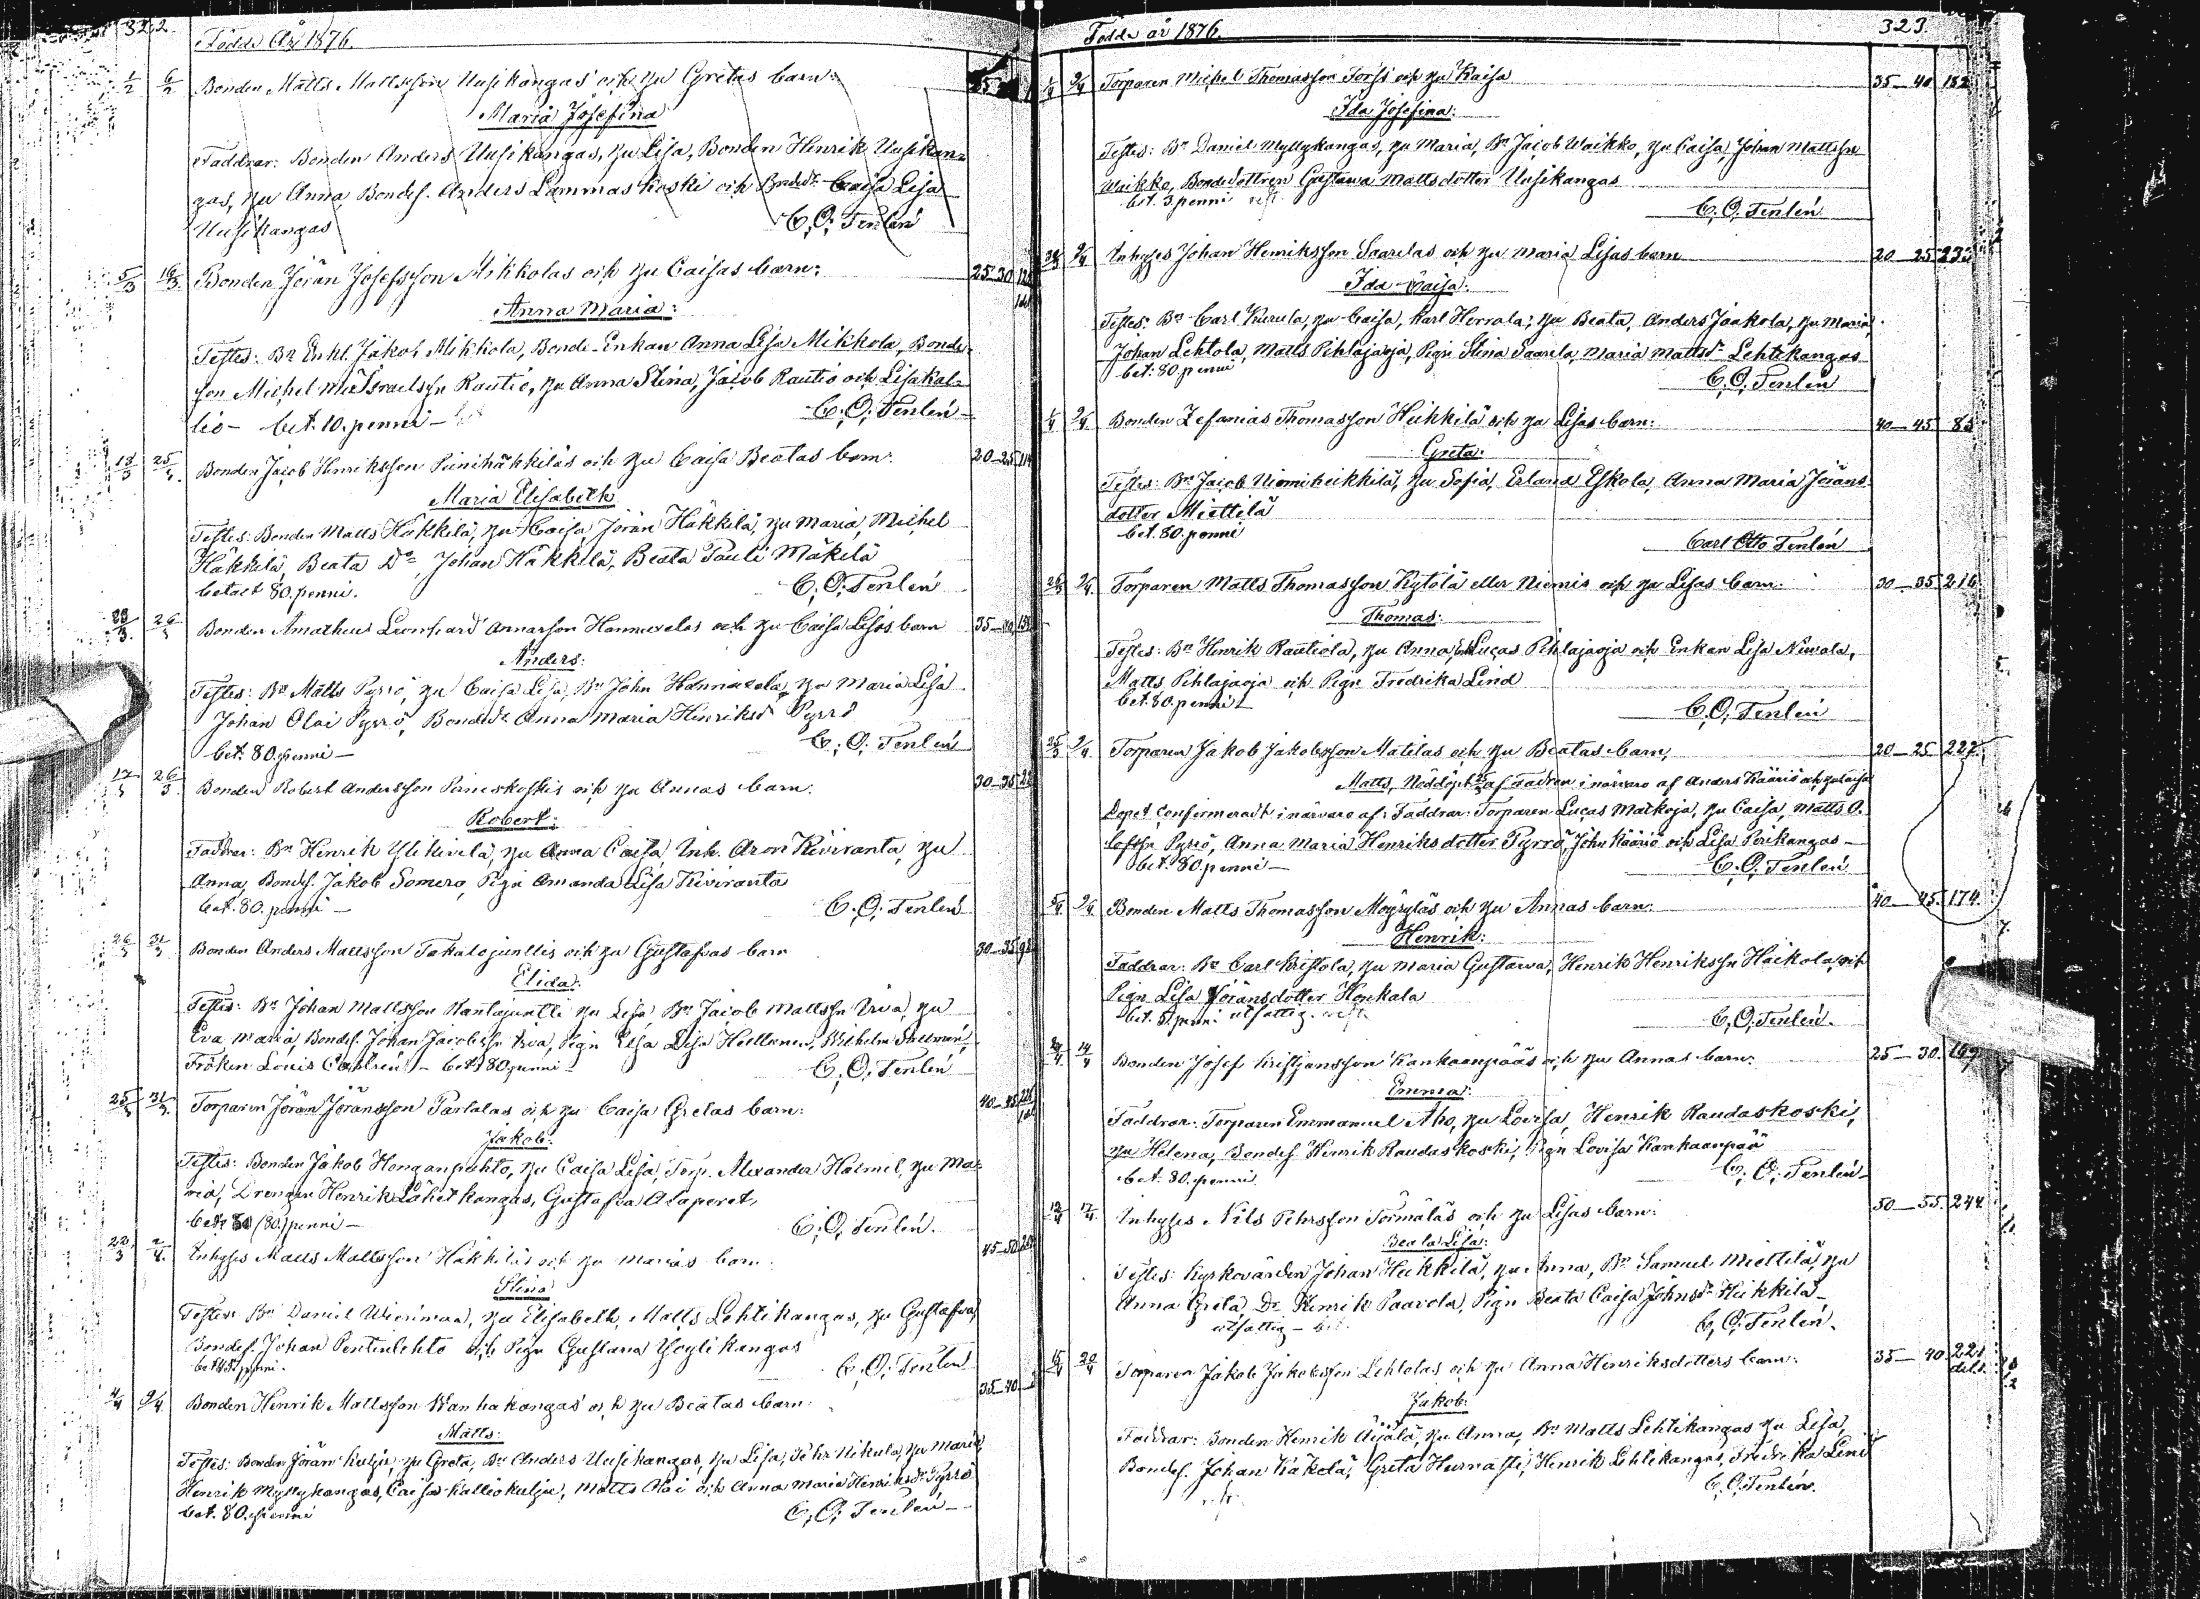 322.
Födde År 1876.
1/2 6/2 Bonden Matts Mattsson Uusikangas och hu Gretas barn:
Maria Josefina
Faddrar: Bonden Anders Uusikangas, hu Lisa, Bonden Henrik Uusikan=
gas, hu Anna, Bondes. Anders Lammaskoski och Bondd. Caisa Lisa
Uusikangas C. O. Tenlén
5/3 19/3 Bonden Jöran Josefsson Mikkolas och hu Caisas barn: 25 30
Anna Maria:
Testes: Bn Enkl. Jakob Mikkola, Bonde-Enkan Anna Lisa Mikkola, Bonde=
son Michel Israelssn Rautio, hu Anna Stina, Jacob Rautio och Lisa Kal=
lio - bet. 10. penni - C. O. Tenlén
18/3 25/3 Bonden Jacob Henriksson Pinihäkkiläs och hu Caisa Beatas barn: 20-25
Maria Elisabeth
Testes: Bonden Matts Häkkilä, hu Caisa, Jöran Häkkilä, hu Maria, Michel
Häkkilä, Beata Do, Johan Häkkilä, Beata Pauli Mäkilä
betalt 80. penni. C. O. Tenlén
26/3 Bonden Amatheus Leonhard Annasson Hannuxelas och hu Caisa Lisas barn 35-40
Anders:
Testes: Bn Matts Pyrrö, hu Caisa Lisa, Bn John Hannuxela, hu Maria Lisa
Johan Olai Pyrrö, Bondedr Anna Maria Henriksdr Pyrrö
bet. 80. penni - C. O. Tenlén
26/3 Bonden Robert Andersson Pirneskoskis och hu Annas barn. 30-35
Robert:
Faddrar: Bn Henrik Ylikivelä, hu Anna Caisa, Inh. Aron Kiviranta, hu
Anna, Bondes. Jakob Somero, Pign Amanda Lisa Kiviranta
bet. 80. penni - C. O. Tenlén
26/3 31/3 Bonden Anders Mattsson Takalojunttis och hu Gustafvas barn 30-35
Elida:
Testes: Bn Johan Mattsson Rantajuntti hu Lisa Bn Jacob Mattssn Urva, hu
Eva Maria, Bondes. Johan Jacobssn Urva, Pign Elsa Lisa Hellman, Wilhelm Snellman,
Fröken Louis Carlzén - bet. 80 penni C. O. Tenlén
25/3 31/3 Torparen Jöran Jöransson Partalas och hu Caisa Gretas barn: 40-45
Jakob:
Testes: Bonden Jakob Honganpuhto, hu Caisa Lisa, Torp. Alexander Haimil, hu Ma=
ria, Drengen Henrik Lähetkangas, Gustafva Alaperet,
bet. 80 (80) penni - C. O. Tenlén.
22/3 2/4. Inhyses Matts Mattsson Häkkiläs och hu Marias barn. 45-50
Stina
Testes: Bn Daniel Wierimaa, hu Elisabeth, Matts Lehtikangas, hu Gustafva,
Bondes. Johan Pentinlehto och Pign Gustava Yxylikangas
C. O. Tenlén
4/4 9/4. Bonden Henrik Mattsson Wanhakangas och hu Beatas barn: 35-40
Matts:
Testes: Bonden Jöran Kulju, hu Greta, Bn Anders Uusikangas, hu Lisa, Pehr Nikula, hu Maria,
Henrik Myllykangas, Caisa Kalliokulju, Matts Olai och Anna Maria Henriksdr Pyrrö
bet. 80. penni C. O. Tenlén -
Födde år 1876. 323.
1/4 9/4 Torparen Michel Thomasson Torfs och hu Kaisa 35-40 152
Ida Josefina:
Testes: Bn Daniel Myllykangas, hu Maria, Bn Jacob Waikko, hu Caisa, Johan Mattssn
Waikko, Bondedottren Gustawa Mattsdotter Uusikangas
bet. 3. penni C. O. Tenlén
9/4 Inhyses Johan Henriksson Saarelas och hu Maria Lisas barn 20-25 233
Ida Caisa:
Testes: Bn Carl Kurula, hu Caisa, Karl Herrala, hu Beata, Anders Jaakola, hu Maria,
Johan Lehtola, Matts Pihlajaoja, Pign Stina Saarela, Maria Mattsdr Lehtikangas
bet. 80. penni C. O. Tenlén
1/4 9/4. Bonden Zefanias Thomasson Heikkilä och hu Lisas barn: 40-45 85
Greta:
Testes: Bn Jacob Niemiheikkilä, hu Sofia, Erland Eskola, Anna Maria Jörans
dotter Miettilä
bet. 80. penni Carl Otto Tenlén
26/3 9/4. Torparen Matts Thomasson Kytölä eller Niemis och hu Lisas barn: 30-35 216
Thomas:
Testes: Bn Henrik Rautiola, hu Anna, Lucas Pihlajaoja och Enkan Lisa Niwala,
Matts Pihlajaoja och Pign Fredrika Lind
bet. 80. penni C. O. Tenlén
25/3 9/4 Torparen Jakob Jakobsson Matilas och hu Beatas barn, 20-25 227.
Matts, Nöddöpt af fadren i närvaro af Anders Kääriö och hu Caisa
Dopet confirmeradt i närvaro af: Faddrar: Torparen Lucas Matkoja, hu Caisa, Matts O.
lofssn Pyrrö, Anna Maria Henriksdotter Pyrrö, John Kääriö och Lisa Perikangas -
bet. 80. penni - C. O. Tenlén
5/4 9/4 Bonden Matts Thomasson Moyryläs och hu Annas barn: 40-45. 174.
Henrik:
Faddrar: Bn Carl Kristola, hu Maria Gustawa, Henrik Henrikssn Haikola, och
Pign Lisa Jöransdotter Honkala
utfattig. C. O. Tenlén.
14/4 Bonden Josef Kristjansson Kankaanpääs och hu Annas barn: 25-30. 169
Emma:
Faddrar: Torparen Emmanuel Aho, hu Lovisa, Henrik Raudaskoski,
hu Helena, Bondes Henrik Raudaskoski, Pign Lovisa Kankaanpää
bet. 80. penni. C. O. Tenlén
12/4 17/4. Inhyses Nils Pehrsson Törmäläs och hu Lisas barn: 50-55. 244
Beata Lisa:
Testes: Kyrkovärden Johan Heikkilä, hu Anna, Bn Samuel Miettilä, hu
Anna Greta Do Henrik Paavola, Pign Beata Caisa Johnsdr Heikkilä
utfattig - C. O. Tenlén.
15/4 30/4 Torparen Jakob Jakobsson Lehtolas och hu Anna Henriksdotters barn: 35-40 221
Jakob:
Faddrar: Bonden Henrik Äijälä, hu Anna, Bn Matts Lehtikangas hu Lisa,
Bondes. Johan Käkelä, Greta Hurnasti, Henrik Lehtikangas, Fredrika Lind
C. O. Tenlén.